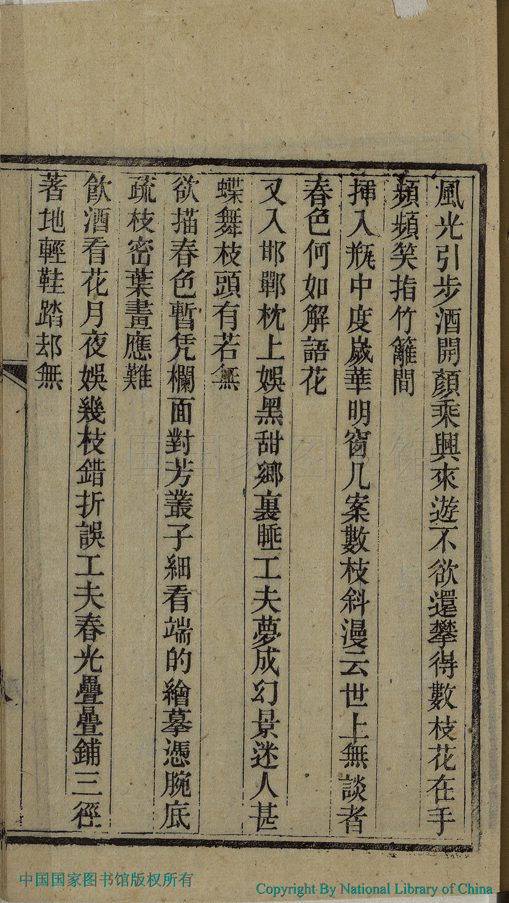 風光引步酒開顏乘興來遊不欲還攀得數枝花在手
頻頻笑指竹籬間
揷入瓶中度歲華明窗几案數枝斜漫云世上無談者
春色何如解語花
又入邯鄲枕上娛黑甜鄉裏睡工夫夢成幻景迷人甚
蝶舞枝頭有若無
欲描春色暫凭欄面對芳叢子細看端的繪摹憑腕底
疏枝密葉畫應難
飮酒看花月夜娛幾枝錯折誤工夫春光疊疊鋪三徑
著地輕鞋踏却無
中国国家图书馆版权所有
Copyright By National Library of China